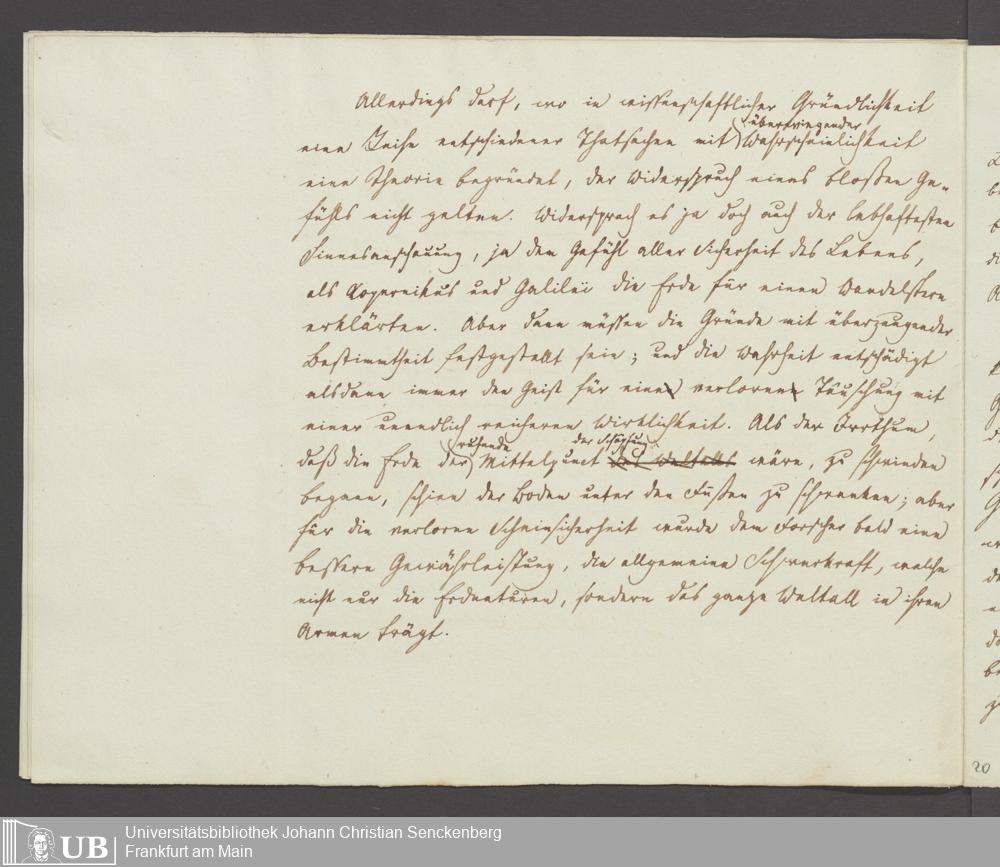 Allerdings darf, wo in wissenschaftlicher Gründlichkeit
eine Reihe entschiedener Thatsachen mit überwiegender Wahrscheinlichkeit
eine Theorie begründet, der Widerspruch eines bloßen Ge-
fühls nicht gelten. Widersprach es ja doch auch der lebhaftesten
Sinnesanschauung, ja dem Gefühl aller Sicherheit des Lebens,
als Kopernikus und Galileï die Erde für einen Wandelstern
erklärten. Aber dann müssen die Gründe mit überzeugender
Bestimmtheit festgestellt sein; und die Wahrheit entschädigt
alsdann immer den Geist für eine verlorene Täuschung mit
einer unendlich reicheren Wirklichkeit. Als der Irrthum,
daß die Erde der ruhende Mittelpunct der Schöpfung des Weltalls wäre, zu schwinden
begann, schien der Boden unter den Füßen zu schwanken; aber
für die verlorne Scheinsicherheit wurde dem Forscher bald eine
bessere Gewährleistung, die allgemeine Schwerkraft, welche
nicht nur die Erdnaturen, sondern das ganze Weltall in ihren
Armen trägt.
20
UB
Universitätsbibliothek Johann Christian Senckenberg
Frankfurt am Main